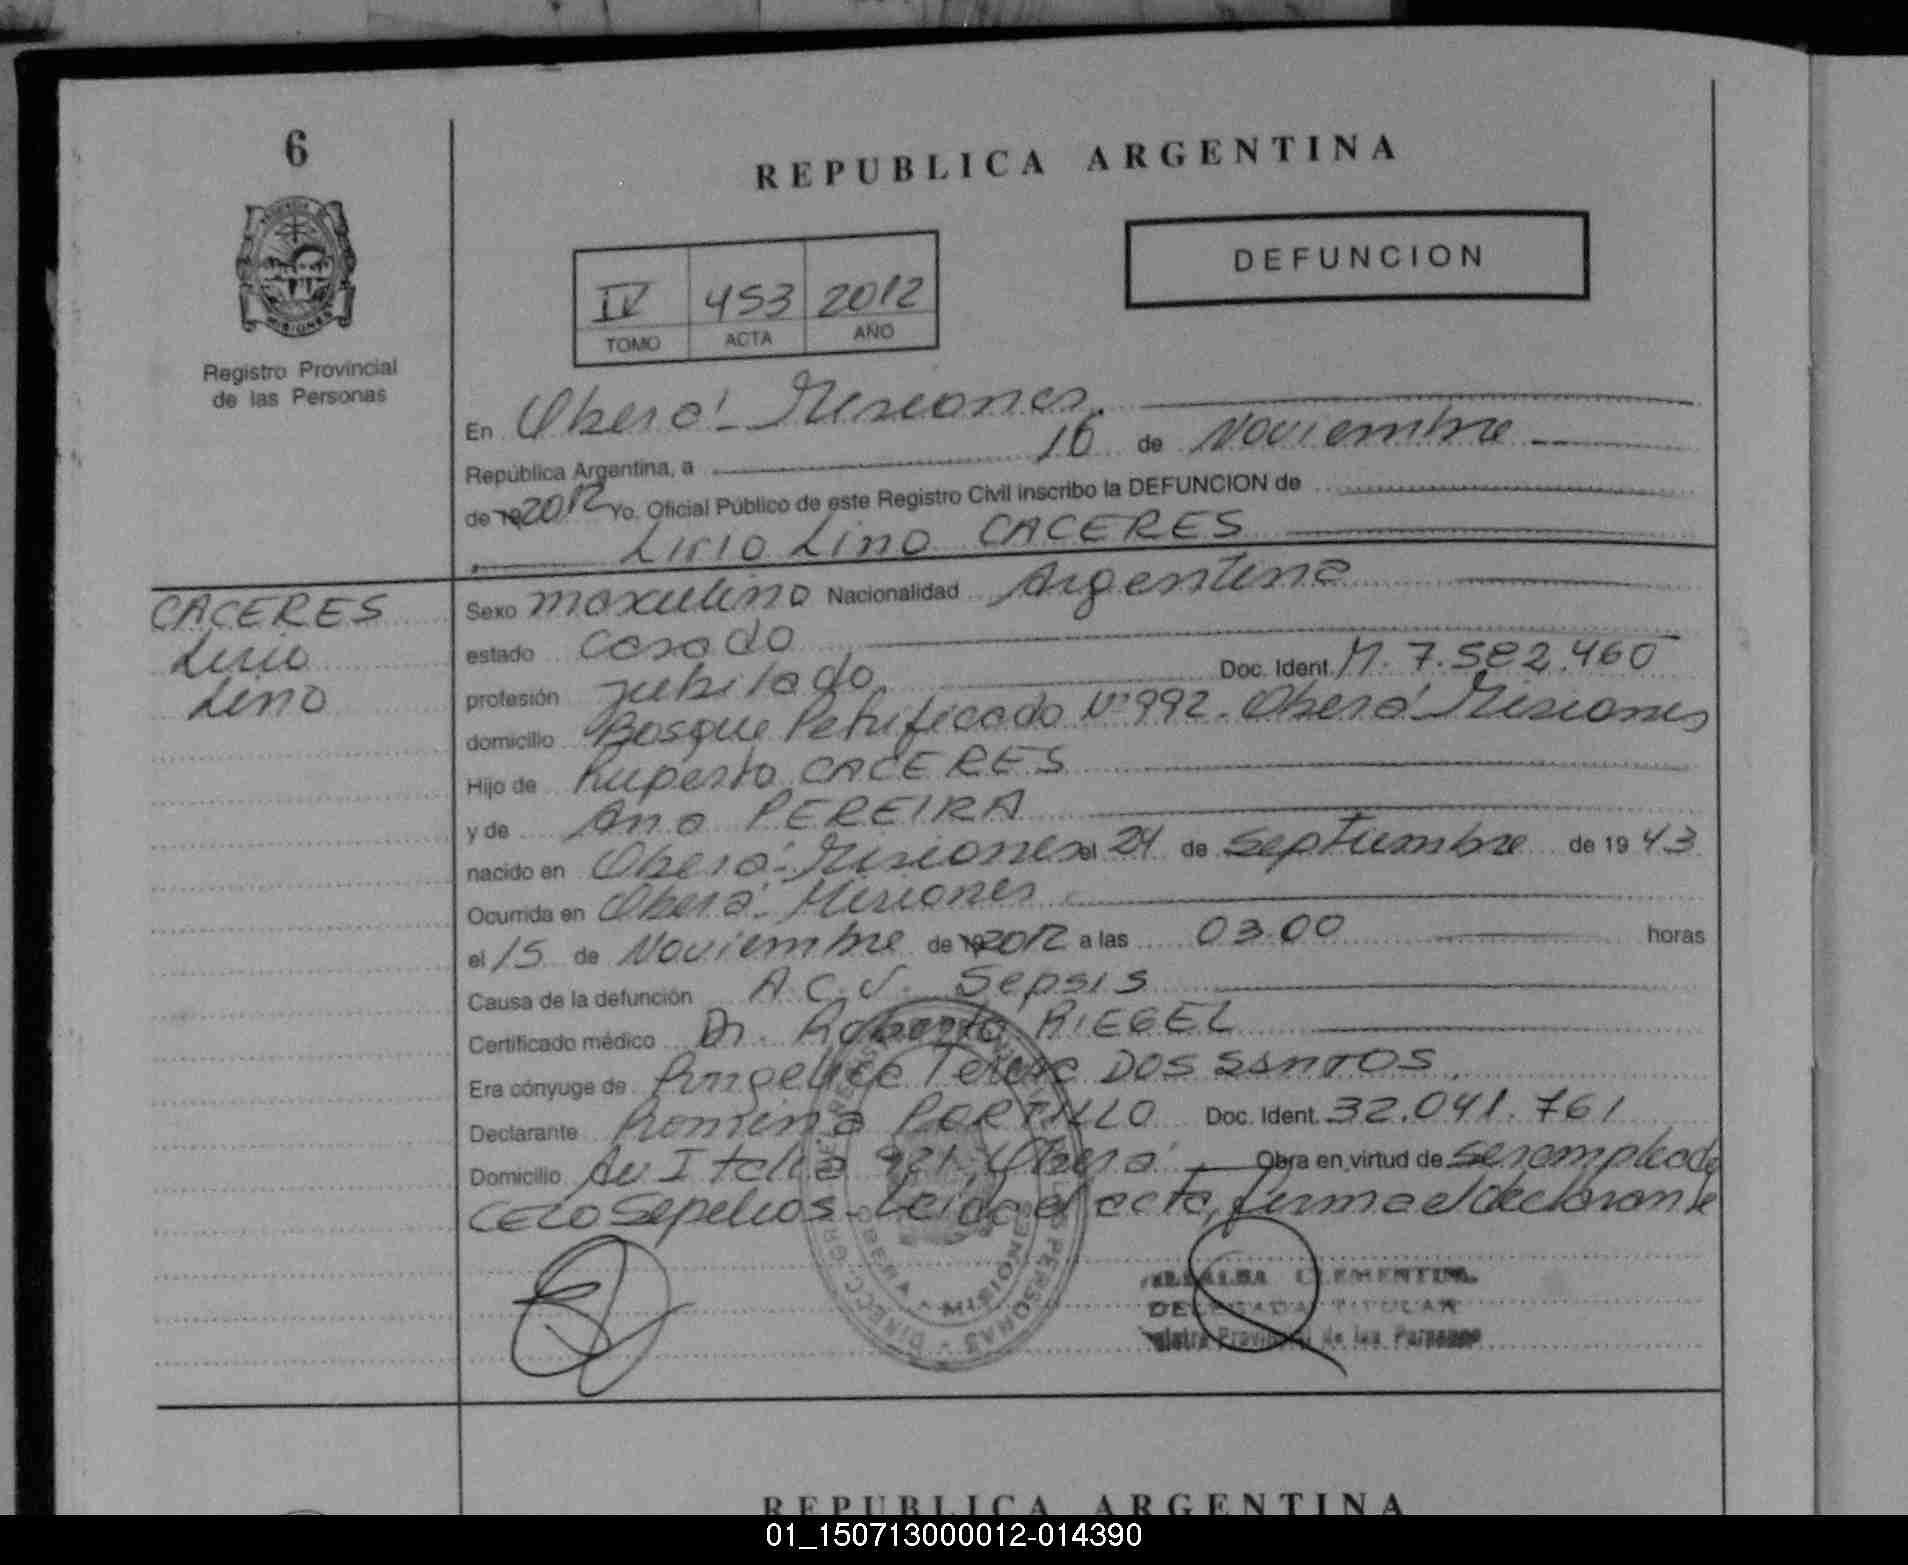 6
REPUBLICA ARGENTINA
MISIONES
Registro Provincial
de las Personas
IV 453 2012
TOMO ACTA AÑO
DEFUNCION
En Oberá - Misiones.
República Argentina, a 16 de Noviembre
de 19 2012 Yo. Oficial Público de este Registro Civil inscribo la DEFUNCION de
Lirio Lino CACERES
CACERES
Lirio
Lino
Sexo masculino Nacionalidad Argentina
estado casado
profesión jubilado Doc. Ident. M. 7.582.460
domicilio Bosque Petrificado Nº 992. Oberá Misiones
Hijo de Ruperto CACERES
y de Ana PEREIRA
nacido en Oberá - Misiones el 24 de septiembre de 19 43
Ocurrida en Oberá - Misiones
el 15 de Noviembre de 19 2012 a las 03.00 horas
Causa de la defunción A.C.V. Sepsis
Certificado médico Dr. Roberto RIEGEL
Era cónyuge de Angelica Teresa DOS SANTOS.
Declarante Romina PORTILLO Doc. Ident. 32.041.761
Domicilio Av Italia 921, Oberá Obra en virtud de ser empleada
CELO Sepelios - Leída el acta, firma el declarante
OBERA - MISIONES
CLEMENTINA
DELEGADA TITULAR
Registro Provincial de las Personas
REPUBLICA ARGENTINA
01_150713000012-014390